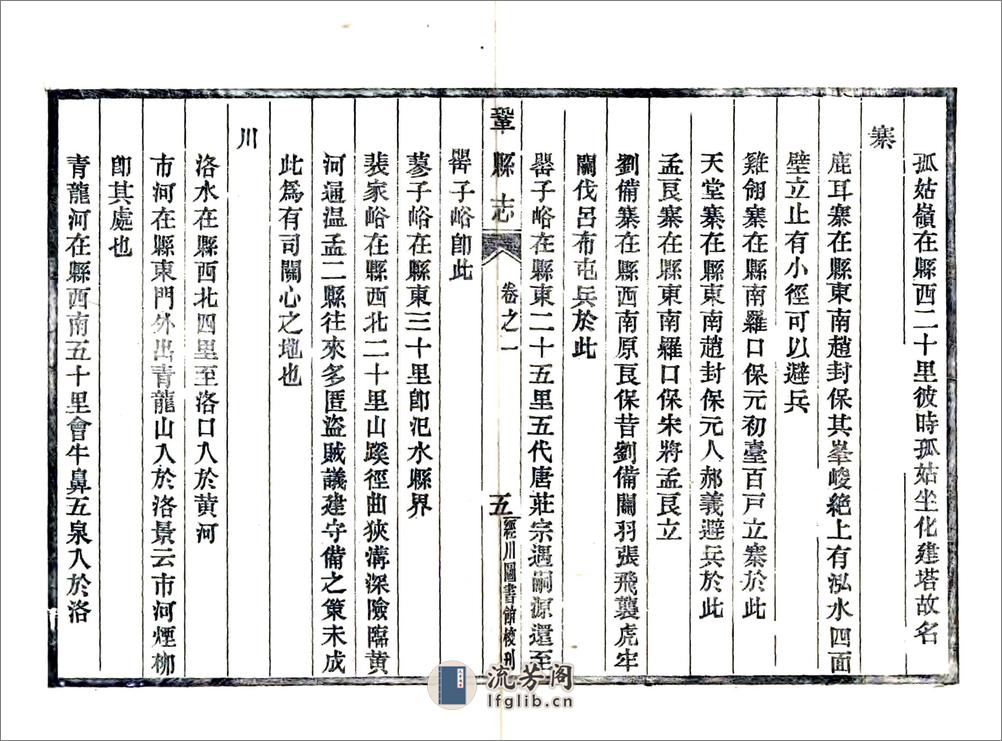 孤姑嶺在縣西二十里彼時孤姑坐化建塔故名
寨
鹿耳寨在縣東南趙封保其峯峻絕上有泓水四面
壁立止有小徑可以避兵
雞翎寨在縣南羅口保元初臺百戸立寨於此
天堂寨在縣東南趙封保元人郝義避兵於此
孟良寨在縣東南羅口保宋將孟良立
劉備寨在縣西南原良保昔劉備關羽張飛襲虎牢
關伐呂布屯兵於此
罌子峪在縣東二十五里五代唐莊宗遇嗣源還至
鞏縣志
卷之一
五
經川圖書館校刊
罌子峪卽此
蓼子峪在縣東三十里卽汜水縣界
裴家峪在縣西北二十里山蹊徑曲狹溝深險臨黄
河通温孟二縣往來多匪盜賊議建守備之策未成
此爲有司關心之地也
川
洛水在縣西北四里至洛口入於黄河
市河在縣東門外出青龍山入於洛景云市河煙柳
卽其處也
青龍河在縣西南五十里會牛鼻五泉入於洛
流芳阁
lfglib.cn